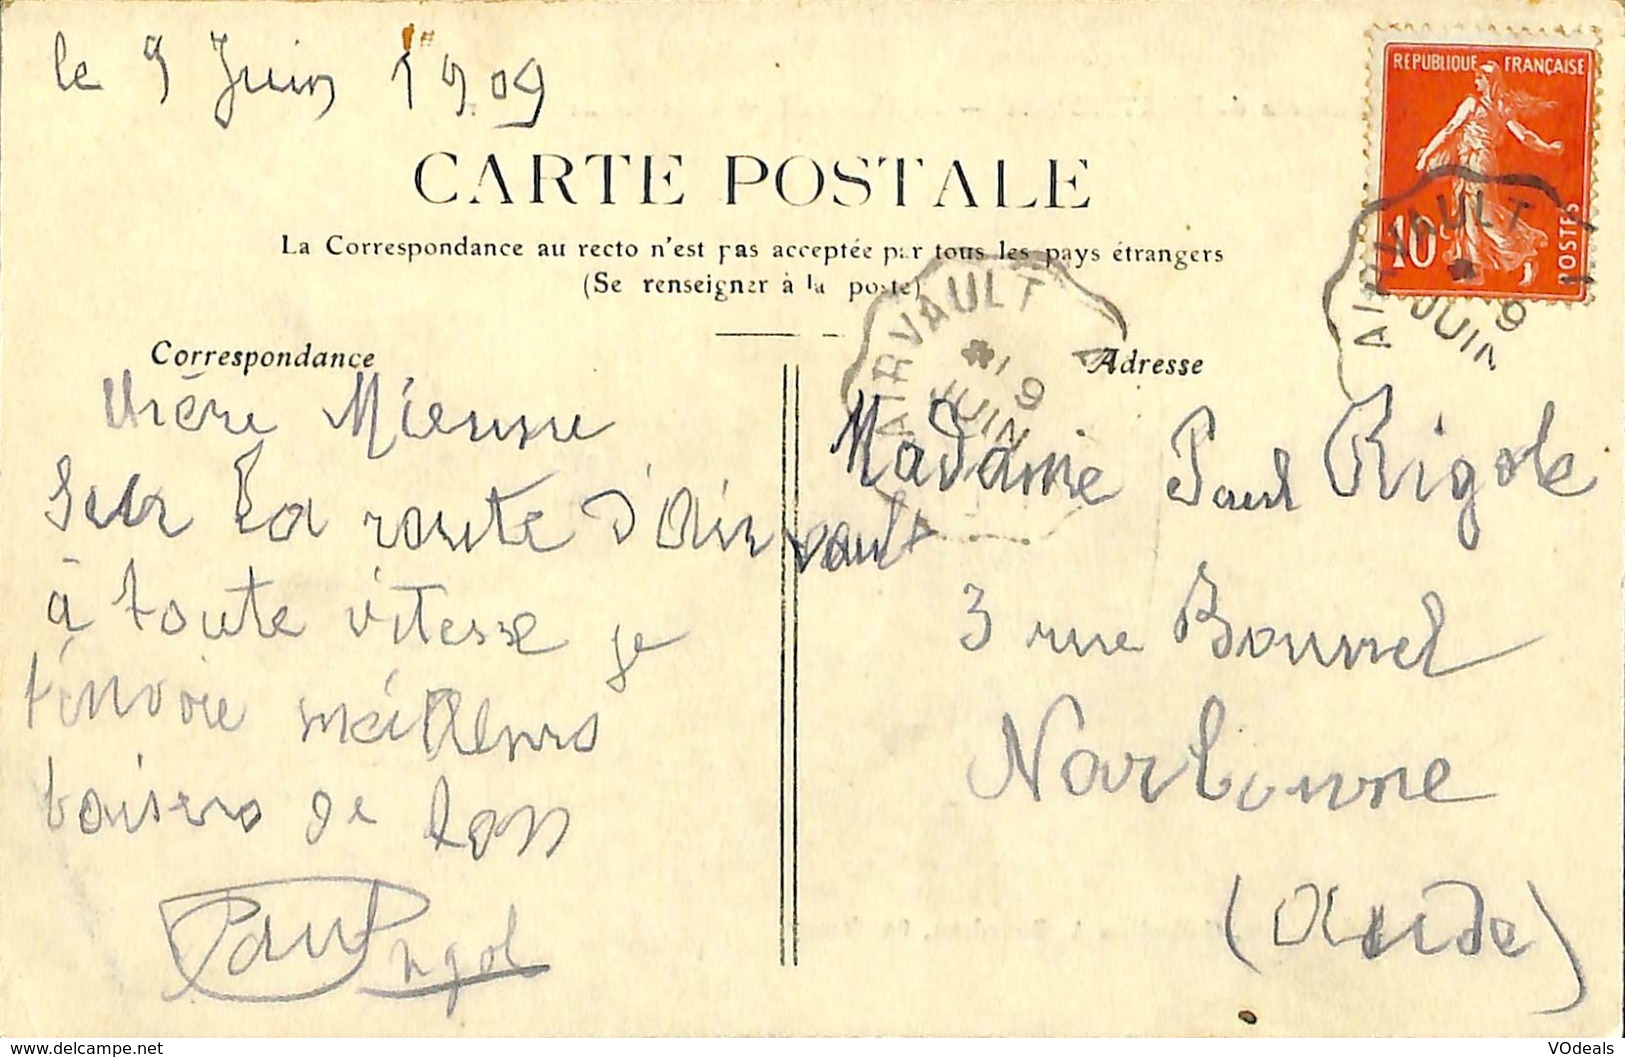 le 9 Juin 1909
RÉPUBLIQUE FRANÇAISE
10c
POSTES
AIRVAULT
9
JUIN
CARTE POSTALE
La Correspondance au recto n'est pas acceptée par tous les pays étrangers
(Se renseigner à la poste)
AIRVAULT A
9
JUIN
Correspondance
Chère Mienne
Sur la route d'Airvault
à toute vitesse je
t'envoie meilleurs
baisers de ton
Paul Rigol
Adresse
Madame Paul Rigole
3 rue Bounel
Narbonne
(Aude)
www.delcampe.net
VOdeals